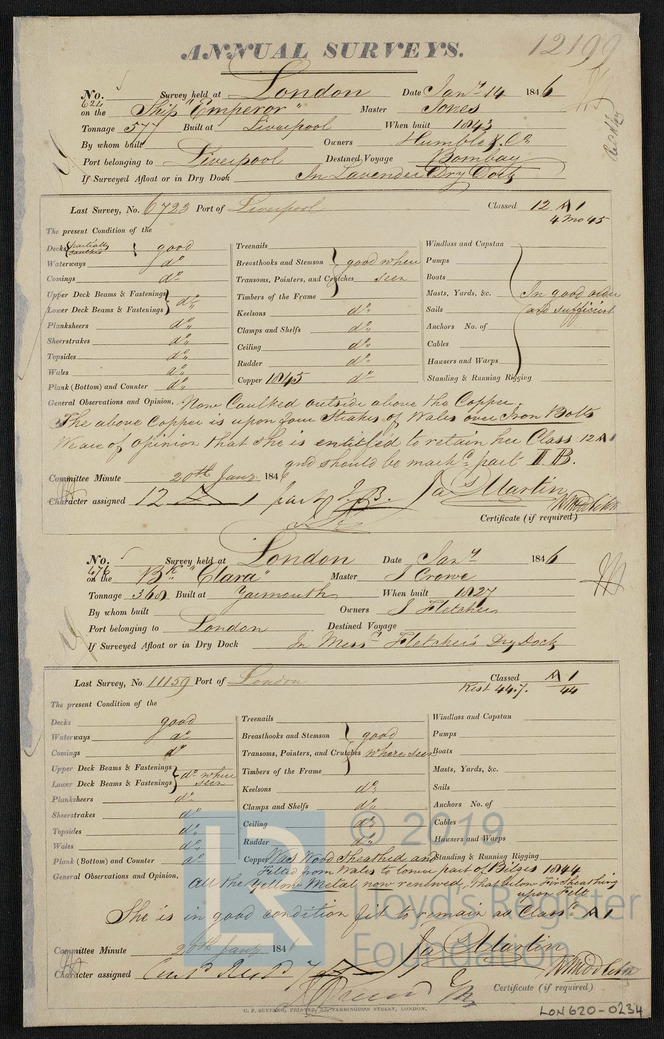 ANNUAL SURVEYS.
12199
No. 624 Survey held at London Date Jany 14 1846
on the Ship "Emperor" Master Jones
Tonnage 577 Built at Liverpool When built 1843
By whom built Owners Humble & Co
Port belonging to Liverpool Destined Voyage Bombay
If Surveyed Afloat or in Dry Dock In Lavender Dry Dock
Last Survey, No. 6723 Port of Liverpool Classed 12 A 1
4 Mo 45
The present Condition of the
Decks partially caulked good
Waterways do
Comings do
Upper Deck Beams & Fastenings
Lower Deck Beams & Fastenings do
Planksheers do
Sheerstrakes do
Topsides do
Wales do
Plank (Bottom) and Counter do
Treenails
Breasthooks and Stemson
Transoms, Pointers, and Crutches good where seen
Timbers of the Frame
Keelsons do
Clamps and Shelfs do
Ceiling do
Rudder do
Copper 1845 do
Windlass and Capstan
Pumps
Boats
Masts, Yards, &c. In good order
Sails and sufficient
Anchors No. of
Cables
Hawsers and Warps
Standing & Running Rigging
General Observations and Opinion, Now Caulked outside above the Copper.
The above Copper is upon four Strakes of Wales over Iron Bolts
We are of opinion that she is entitled to retain her Class 12 A 1
and should be markd part I B.
Committee Minute 20th Jany 1846
Character assigned 12 A 1 part I.B. Jas Martin
Certificate (if required)
No. 476 Survey held at London Date Jany 1846
on the Bk "Clara" Master J Crowe
Tonnage 368 Built at Yarmouth When built 1827
By whom built Owners J Fletcher
Port belonging to London Destined Voyage
If Surveyed Afloat or in Dry Dock In Messrs Fletcher's Dry Dock
Last Survey, No. 11159 Port of London Classed A 1
Rest 44.7. 44
The present Condition of the
Decks good
Waterways do
Comings do
Upper Deck Beams & Fastenings
Lower Deck Beams & Fastenings do where seen
Planksheers do
Sheerstrakes do
Topsides do
Wales do
Plank (Bottom) and Counter do
Treenails
Breasthooks and Stemson good
Transoms, Pointers, and Crutches where seen
Timbers of the Frame
Keelsons do
Clamps and Shelfs do
Ceiling do
Rudder do
Copper Was Wood Sheathed and
Felted from Wales to lower part of Bilges 1844
Windlass and Capstan
Pumps
Boats
Masts, Yards, &c.
Sails
Anchors No. of
Cables
Hawsers and Warps
Standing & Running Rigging
General Observations and Opinion, All the Yellow Metal now renewed, that below Fir Sheathing
upon Felt
She is in good condition fit to remain as Class A 1
Committee Minute 20th Jany 184
Jas Martin
Character assigned
Certificate (if required)
LON620-0234
© 2019
Lloyd's Register
Foundation
LR